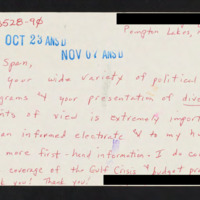 3528-90
OCT 23 ANSD
NOV 07 ANSD
Pompton Lakes, N
Span,
your wide variety of political
grams & your presentation of dive
nts of view is extremely import
an informed electorate & to my ha
more first-hand information. I do con
coverage of the Gulf Crisis & budget pro
k you! Thank you!